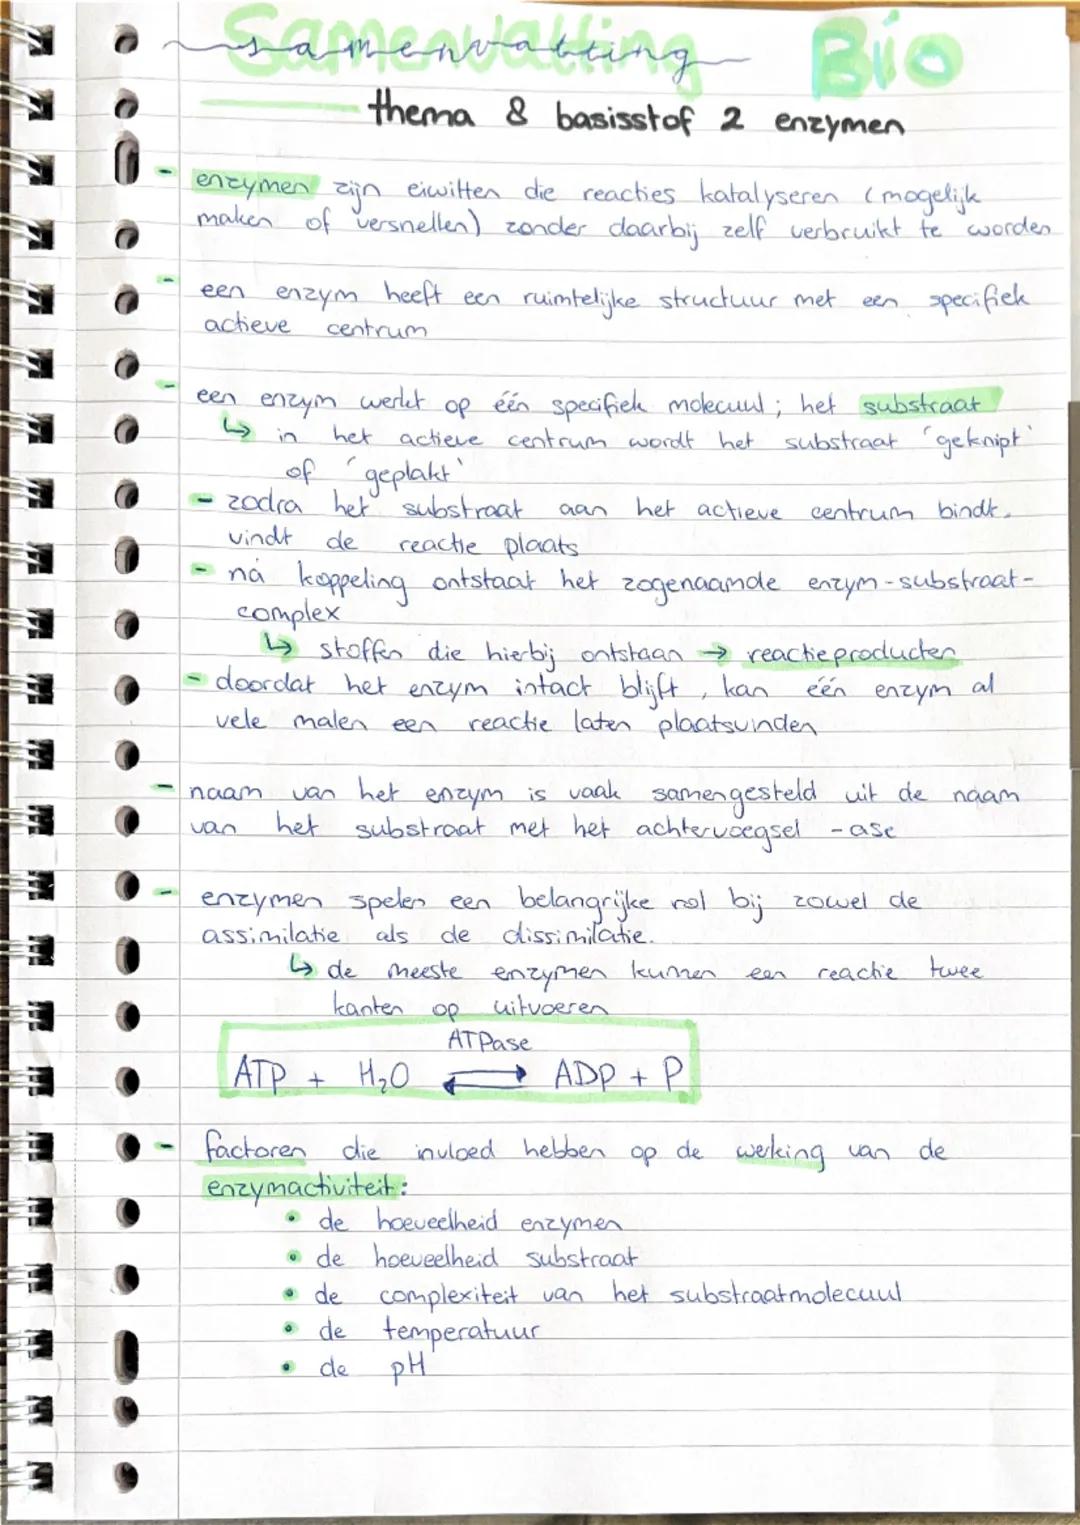 Samenvatting Bio
samenvatting
thema & basisstof 2 enzymen
- enzymen zijn eiwitten die reacties katalyseren (mogelijk
maken of versnellen) zonder daarbij zelf verbruikt te worden
- een enzym heeft een ruimtelijke structuur met een specifiek
actieve centrum
- een enzym werkt op één specifiek molecuul; het substraat
↳ in het actieve centrum wordt het substraat 'geknipt'
of 'geplakt'
- zodra het substraat aan het actieve centrum bindt,
vindt de reactie plaats
- ná koppeling ontstaat het zogenaamde enzym-substraat-
complex
↳ stoffen die hierbij ontstaan → reactieproducten
- doordat het enzym intact blijft, kan één enzym al
vele malen een reactie laten plaatsvinden
- naam van het enzym is vaak samengesteld uit de naam
van het substraat met het achtervoegsel -ase
- enzymen spelen een belangrijke rol bij zowel de
assimilatie als de dissimilatie.
↳ de meeste enzymen kunnen een reactie twee
kanten op uitvoeren
ATPase
ATP + H₂O ⇄ ADP + P
- factoren die invloed hebben op de werking van de
enzymactiviteit:
• de hoeveelheid enzymen
• de hoeveelheid substraat
• de complexiteit van het substraatmolecuul
• de temperatuur
• de pH